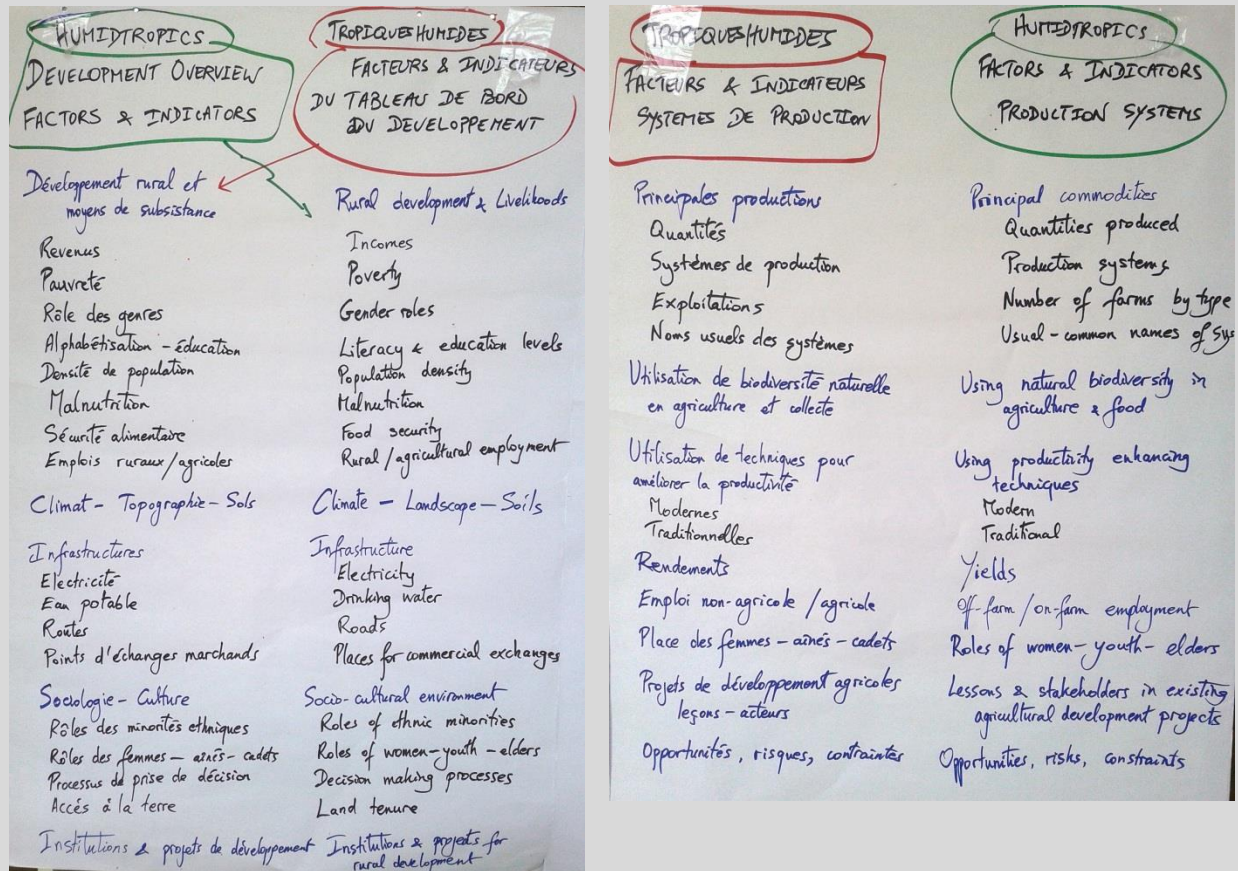 HUMIDTROPICS
DEVELOPMENT OVERVIEW
FACTORS & INDICATORS
TROPIQUES HUMIDES
FACTEURS & INDICATEURS
DU TABLEAU DE BORD
DU DEVELOPPEMENT
Développement rural et
moyens de subsistance
Revenus
Pauvreté
Rôle des genres
Alphabétisation - éducation
Densité de population
Malnutrition
Sécurité alimentaire
Emplois ruraux/agricoles
Climat - Topographie - Sols
Infrastructures
Electricité
Eau potable
Routes
Points d'échanges marchands
Sociologie - Culture
Rôles des minorités ethniques
Rôles des femmes - ainés - cadets
Processus de prise de décision
Accés á la terre
Institutions & projets de développement
Rural development & Livelihoods
Incomes
Poverty
Gender roles
Literacy & education levels
Population density
Malnutrition
Food security
Rural/agricultural employment
Climate - Landscape - Soils
Infrastructure
Electricity
Drinking water
Roads
Places for commercial exchanges
Socio-cultural environment
Roles of ethnic minorities
Roles of women-youth-elders
Decision making processes
Land tenure
Institutions & projects for
rural development
TROPIQUES HUMIDES
FACTEURS & INDICATEURS
SYSTEMES DE PRODUCTION
Principales productions
Quantités
Systémes de production
Exploitations
Noms usuels des systémes
Utilisation de biodiversité naturelle
en agriculture et collecte
Utilisation de techniques pour
améliorer la productivité
Modernes
Traditionnelles
Rendements
Emploi non-agricole /agricole
Place des femmes - ainés - cadets
Projets de développement agricoles
leçons - acteurs
Opportunités, risques, contraintes
HUMIDTROPICS
FACTORS & INDICATORS
PRODUCTION SYSTEMS
Principal commodities
Quantities produced
Production systems
Number of farms by type
Usual-common names of Sys
Using natural biodiversity in
agriculture & food
Using productivity enhancing
techniques
Modern
Traditional
Yields
Off-farm /on-farm employment
Roles of women-youth-elders
Lessons & stakeholders in existing
agricultural development projects
Opportunities, risks, constraints